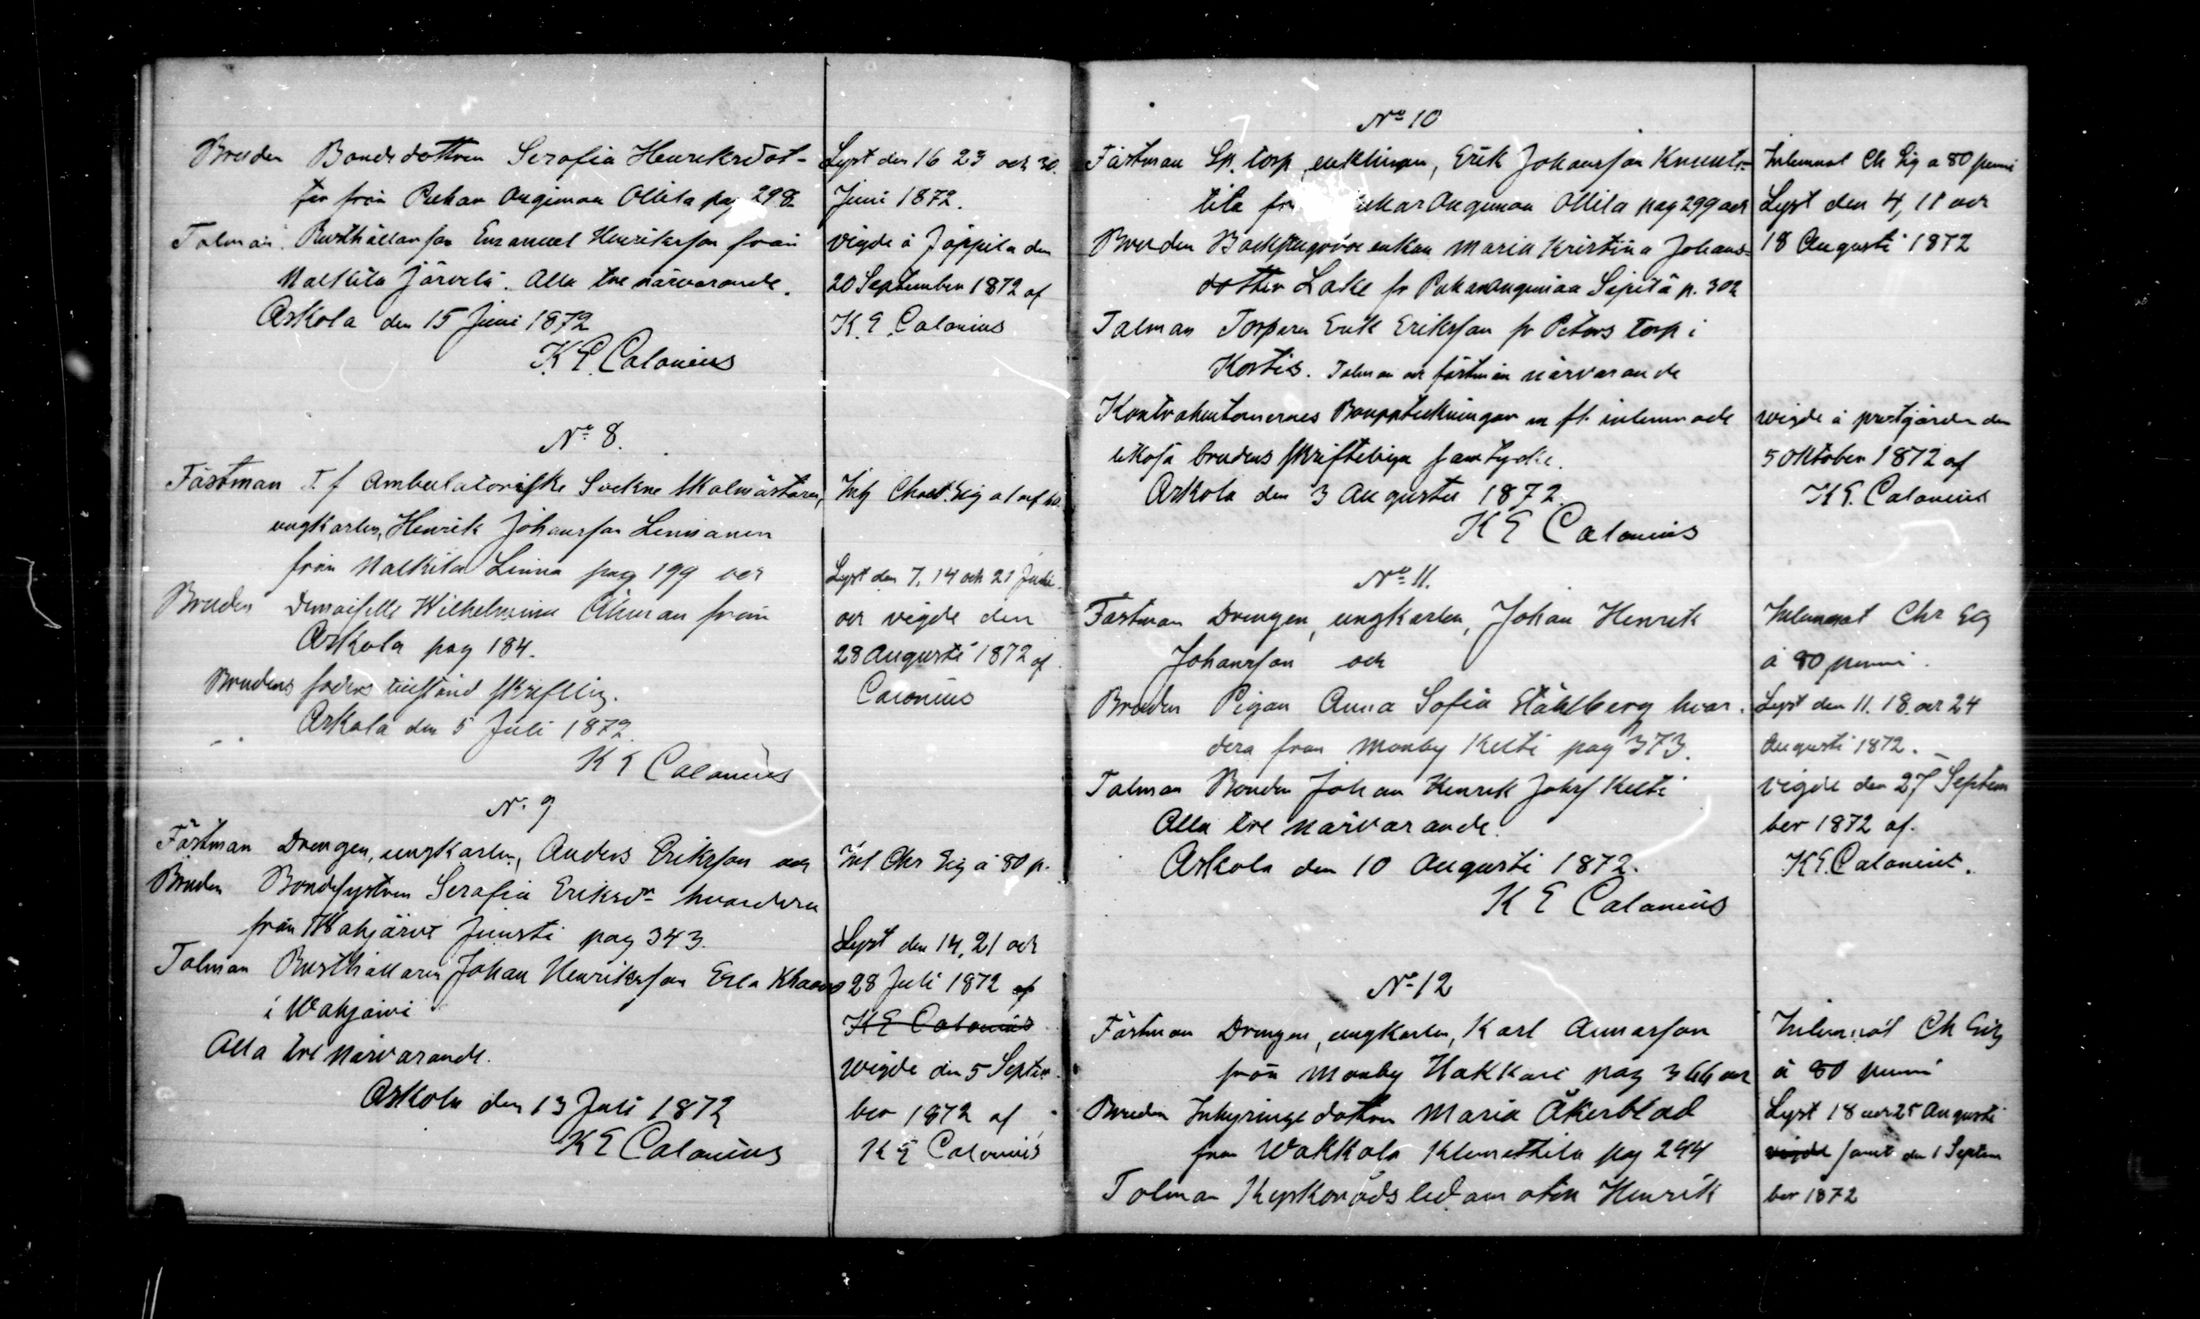 Bruden Bondedottren Serafia Henriksdot-
ter från Pukar Anginmaa Ollila pag 298
Talman Rusthållarson Emanuel Henriksson från
Nalkila Järvelä. Alla tre närvarande.
Askola den 15 Juni 1872
K. E. Calonius
Lyst den 16 23 och 30.
Juni 1872.
vigde å Jäppilä den
20 September 1872 af
K. E. Calonius
No 8.
Fästman T. f Ambulatoriske Sockne skolmästaren,
ungkarlen, Henrik Johansson
från Nalkila Linna pag 199 och
Bruden Demoiselle Wilhelmina Öhman från
Askola pag 184.
Brudens faders tillstånd skriftlig.
Askola den 5 Juli 1872.
K E Calonius
Lyst den 7. 14 och 21 Juli
och vigde den
28 Augusti 1872 af
Calonius
No 9
Fästman Drengen, ungkarlen, Anders Eriksson och
Bruden Bondesystren Serafia Eriksdr hvardera
från Wahjärvi Juusti pag 343.
Talman Rusthållaren Johan Henriksson Erla Klaavo
i Wahjärvi
Alla tre närvarande.
Askola den 13 Juli 1872
K E Calonius
Inl Chr Sig à 80 p.
Lyst den 14, 21 och
28 Juli 1872 af
K E Calonius
vigde den 5 Septem
ber 1872 af
K E Calonius
No 10
Fästman Sp. torp, enklingen, Erik Johansson Knuut-
tila Anginmaa Ollila pag 299 och
Bruden enkan Maria Kristina Johans-
dotter Lake fr Pukar Anginmaa Sipilä p. 302
Talman Torparen Erik Eriksson fr Peters torp i
Kortis. Talman och fästman närvarande
Kontrahenternes Bouppteckningar m fl. inlemnade
likaså brudens skriftliga samtycke.
Askola den 3 Augusti 1872.
K E Calonius
Inlemnat Ch Sig a 80 penni
Lyst den 4, 11 och
18 Augusti 1872
vigde å prestgården den
5 Oktober 1872 af
K E. Calonius
No 11.
Fästman Drengen, ungkarlen, Johan Henrik
Johansson och
Bruden Pigan Anna Sofia Ståhlberg hvar-
dera från Monby Kelti pag 373.
Talman Bonden Johan Henrik Johss Kelti
Alla tre närvarande.
Askola den 10 Augusti 1872.
K E Calonius
Inlemnat Chr Sig
à 80 penni.
Lyst den 11. 18. och 24
Augusti 1872.
vigde den 27 Septem
ber 1872 af.
K E. Calonius.
No 12
Fästman Drengen, ungkarlen, Karl
från Monby Hakkari pag 366 och
Bruden Inhysinge dottren Maria Åkerblad
från Wakkola Klemettilä pag 294
Talman Kyrkorådsledamoten Henrik
Inlemnat Ch Sig
à 80 penni
Lyst 18 och 25 Augusti
vigde samt den 1 Septem
ber 1872